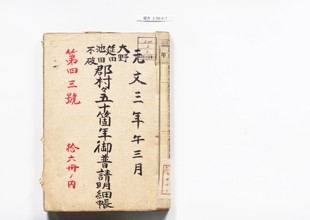 元文三年午三月
大野
莚田
池田
不破
郡村々五十箇年御普請明細帳
第四三號
拾六冊ノ内